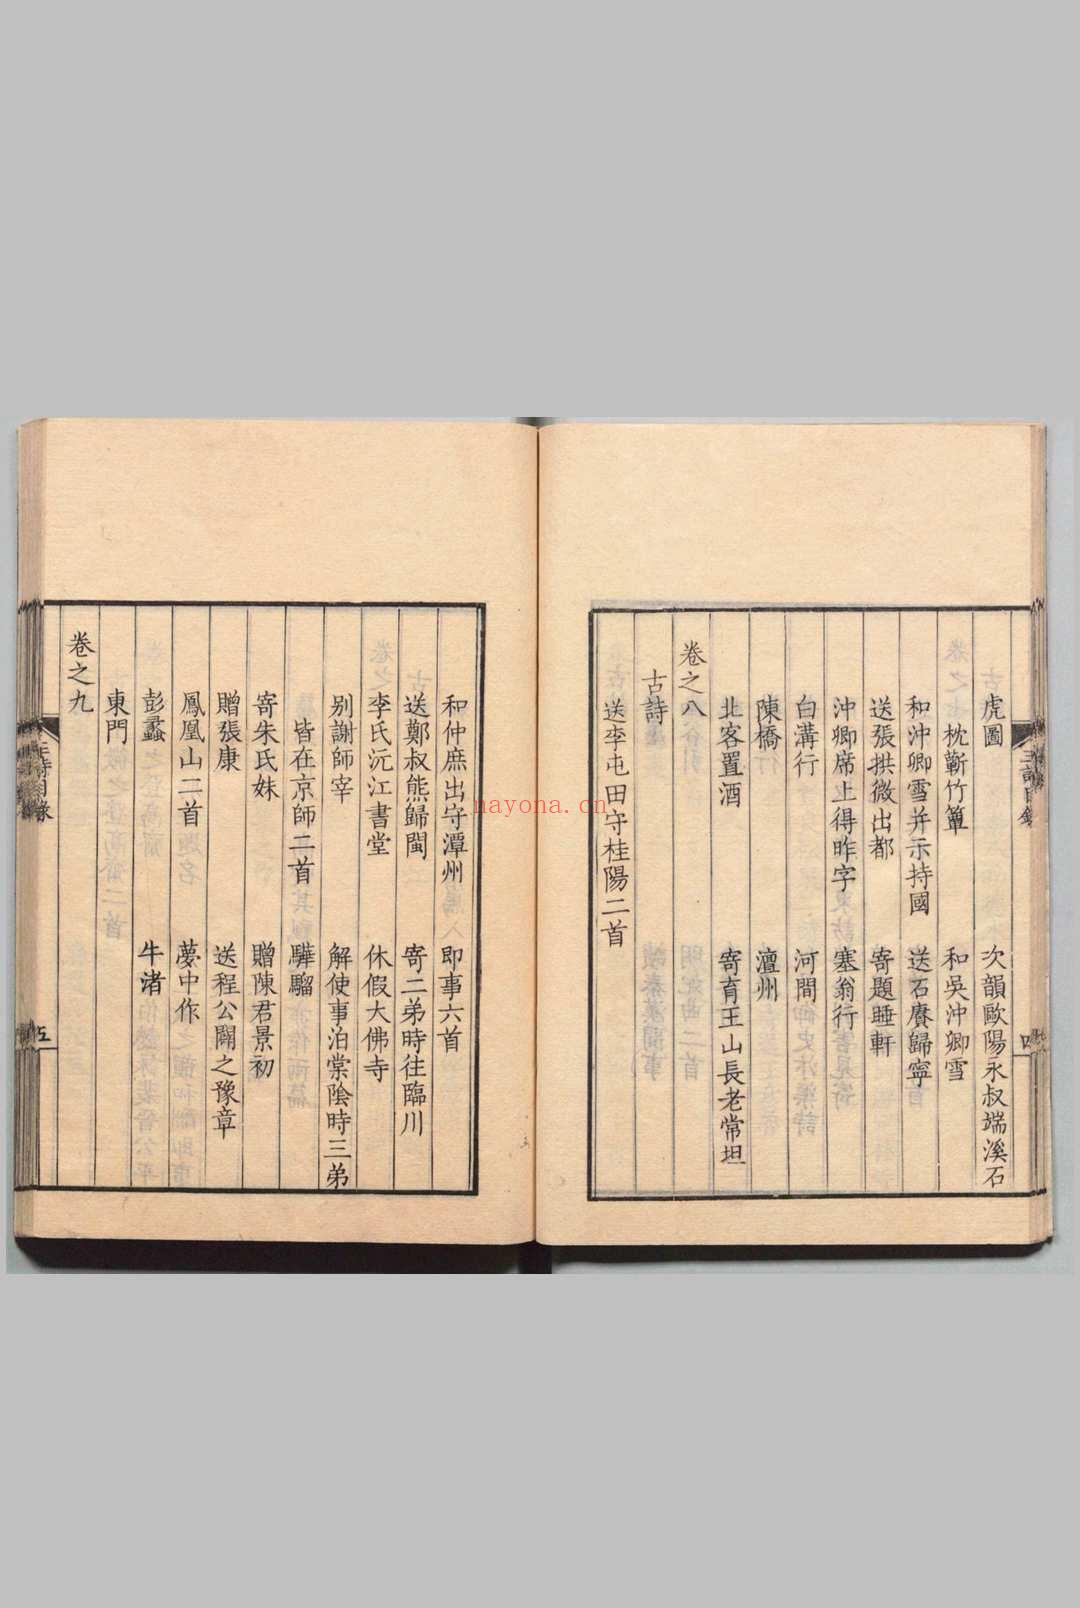 虎圖 次韻歐陽永叔端溪石
枕蘄竹簟 和吳沖卿雪
和沖卿雪并示持國 送石賡歸寧
送張拱微出都 寄題睡軒
沖卿席上得昨字 塞翁行
白溝行 河間
陳橋 澶州
北客置酒 寄育王山長老常坦
卷之八
古詩
送李屯田守桂陽二首
四
和仲庶出守潭州 即事六首
送鄭叔熊歸閩 寄二弟時往臨川
李氏沅江書堂 休假大佛寺
别謝師宰 解使事泊棠陰時三弟
皆在京師二首 驊騮
寄朱氏妹 贈陳君景初
贈張康 送程公闢之豫章
鳳凰山二首 夢中作
彭蠡 牛渚
東門
卷之九
五
nayona.cn